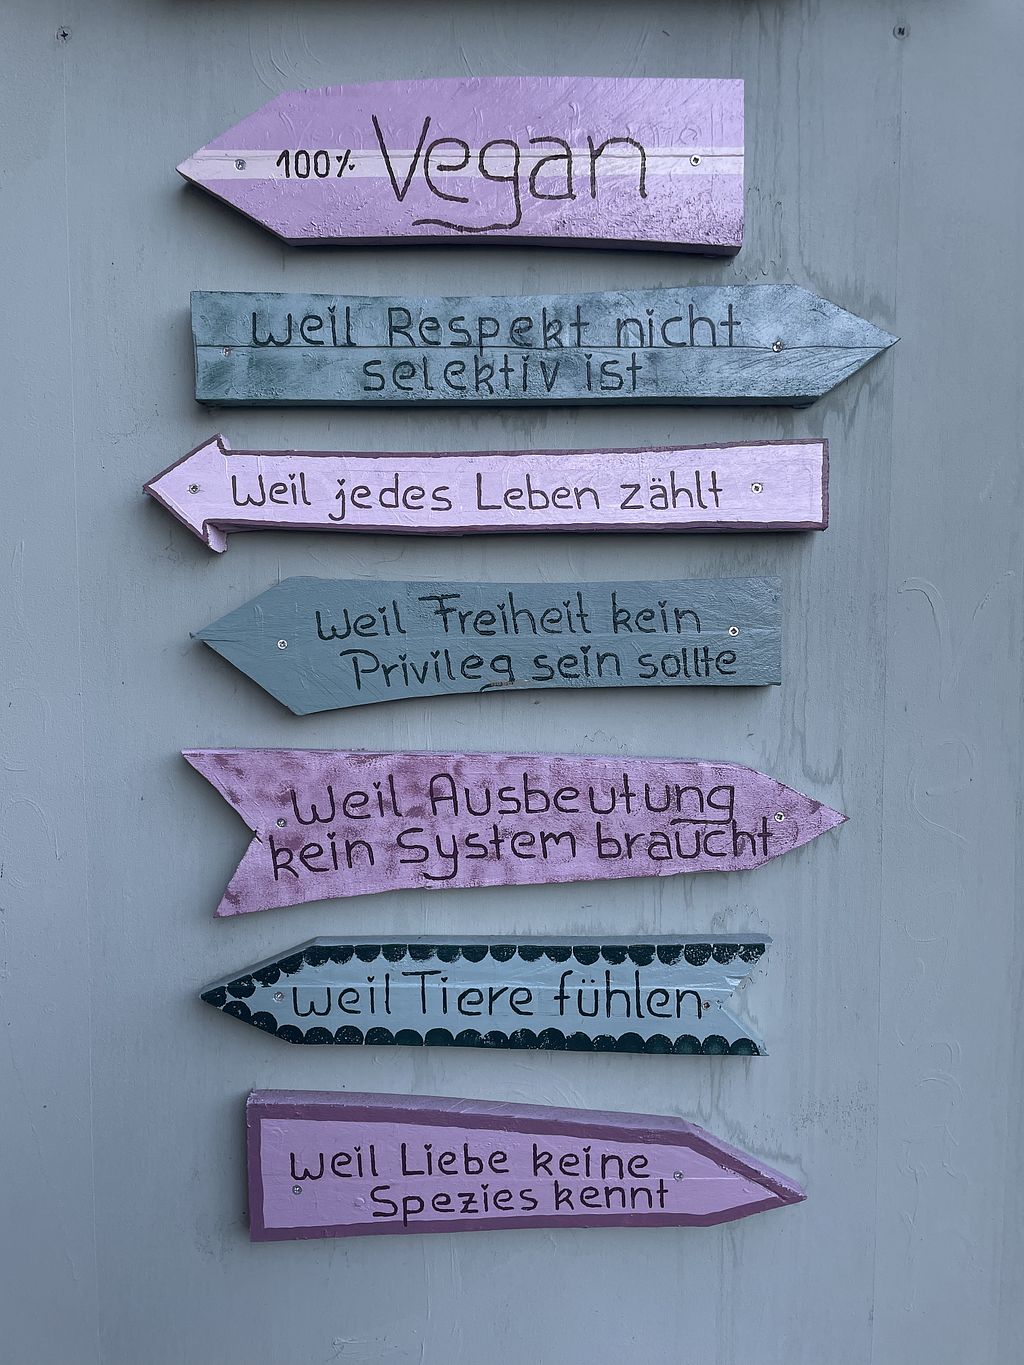 100% Vegan
Weil Respekt nicht
selektiv ist
Weil jedes Leben zählt
Weil Freiheit kein
Privileg sein sollte
Weil Ausbeutung
kein System braucht
Weil Tiere fühlen
Weil Liebe keine
Spezies kennt